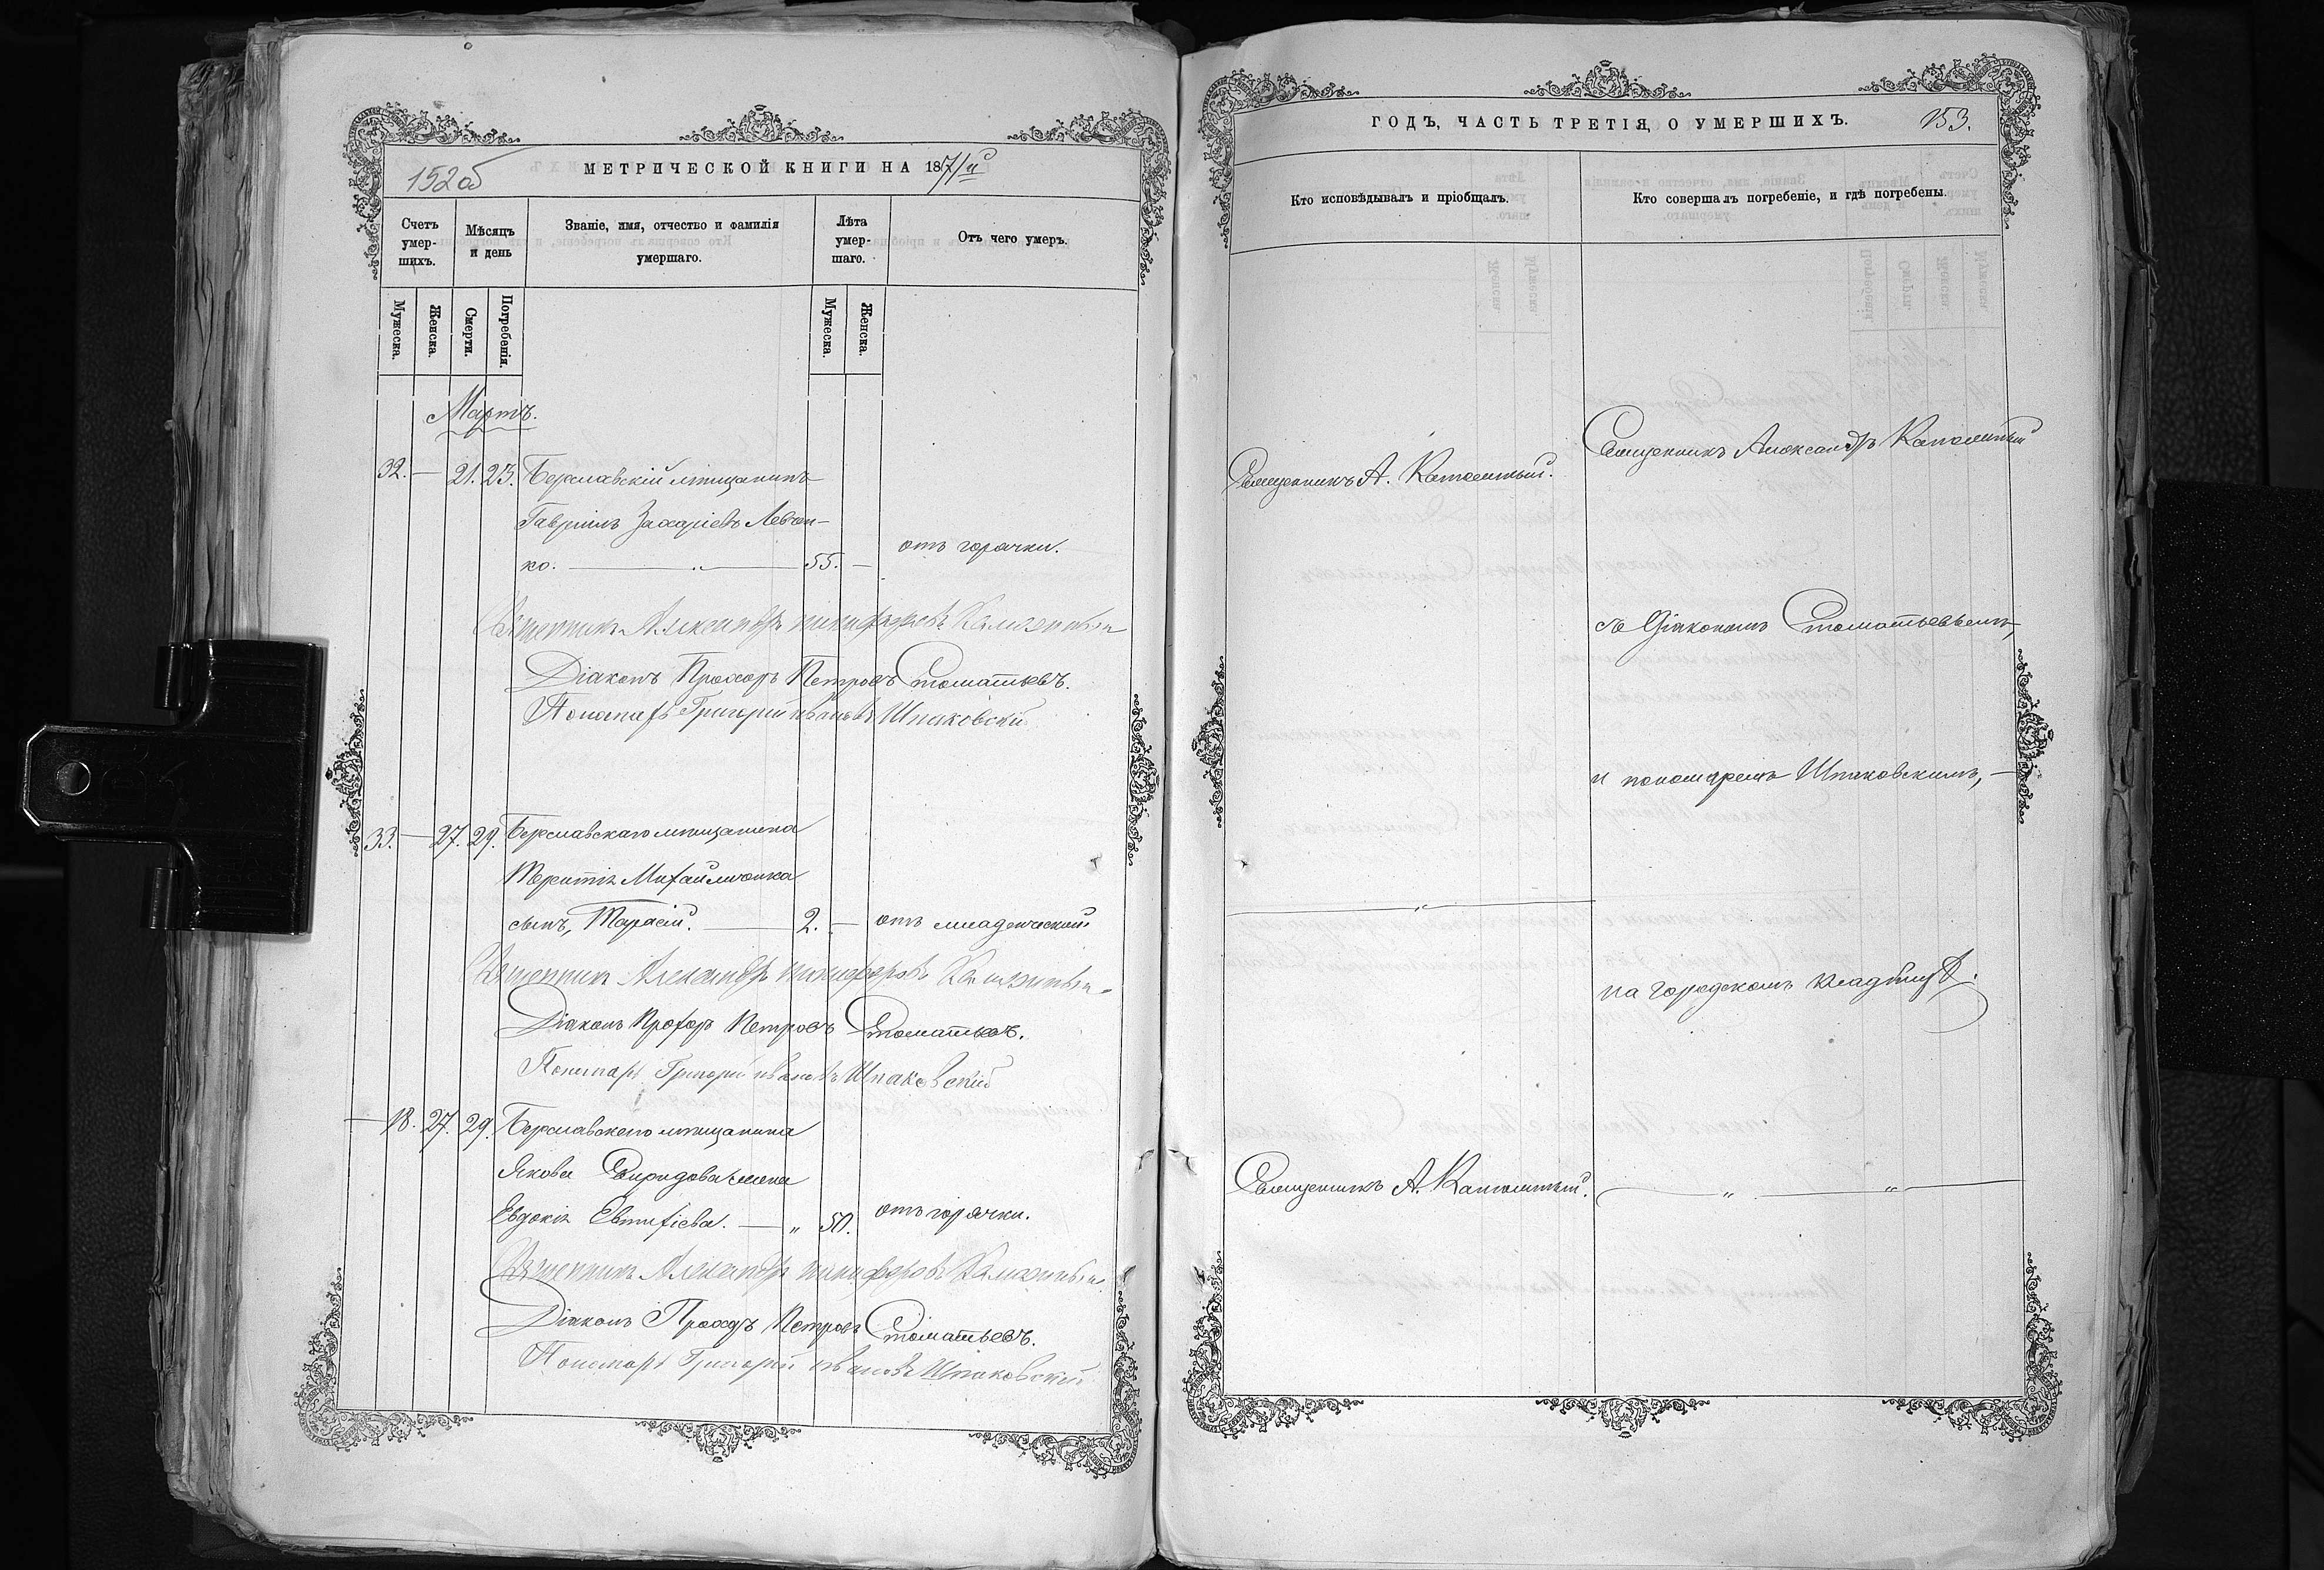 152 об
МЕТРИЧЕСКОЙ КНИГИ НА 1871й
Счетъ умер-шихъ.
Мѣсяцъ и день
Званіе, имя, отчество и фамилія умершаго.
Лѣта умер-шаго.
Отъ чего умеръ.
Мужеска.
Женска.
Смерти.
Погребенія.
Мужеска.
Женска.
Мартъ.
32. — 21. 23. Бериславскій мѣщанинъ
Гавріилъ Захаріевъ Левчен-
ко. — 55. — отъ горячки.
Священникъ Александръ Никифоровъ
Діаконъ Прохоръ Петровъ Стоматьевъ.
Пономарь Григорій Ивановъ Шпаковскій
33. — 27. 29. Бериславскаго мѣщанина
Терентія Михайличенка
сынъ, Тарасій. — 2. — отъ младенческой
Священникъ Александръ Никифоровъ
Діаконъ Прохоръ Петровъ Стоматьевъ.
Пономарь Григорій Ивановъ Шпаковскій
— 18. 27. 29. Бериславскаго мѣщанина
Якова Свиридова жена
Евдокія Евтихіева. — „ 50. отъ горячки.
Священникъ Александръ Никифоровъ
Діаконъ Прохоръ Петровъ Стоматьевъ.
Пономарь Григорій Ивановъ Шпаковскій
ГОДЪ, ЧАСТЬ ТРЕТІЯ, О УМЕРШИХЪ. 153.
Кто исповѣдывалъ и пріобщалъ.
Кто совершалъ погребеніе, и гдѣ погребены.
Священникъ А.
Священникъ Александръ
съ Діакономъ Стоматьевымъ,
и пономаремъ Шпаковскимъ, —
на городскомъ кладбищѣ.
Священникъ А.
— „ — „ —